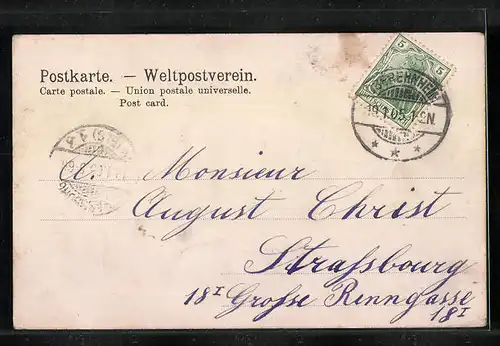 Postkarte. — Weltpostverein.
Carte postale. — Union postale universelle.
Post card.
5 5
19.1.05
A. Monsieur
August Christ
Straßbourg
18I Grosse Renngasse
18I